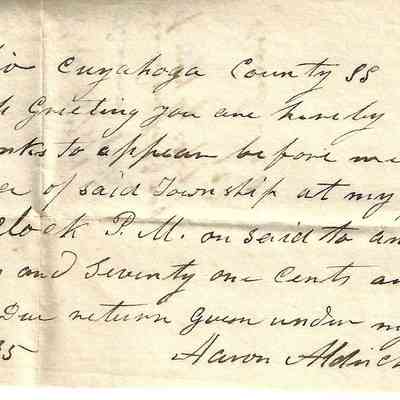 io Cuyahoga County SS
Greeting You are hereby
to appear before me
of said Township at my
lock P.M. on said to an
and Seventy one Cents a
Due return Given under my
35 Aaron Aldrich